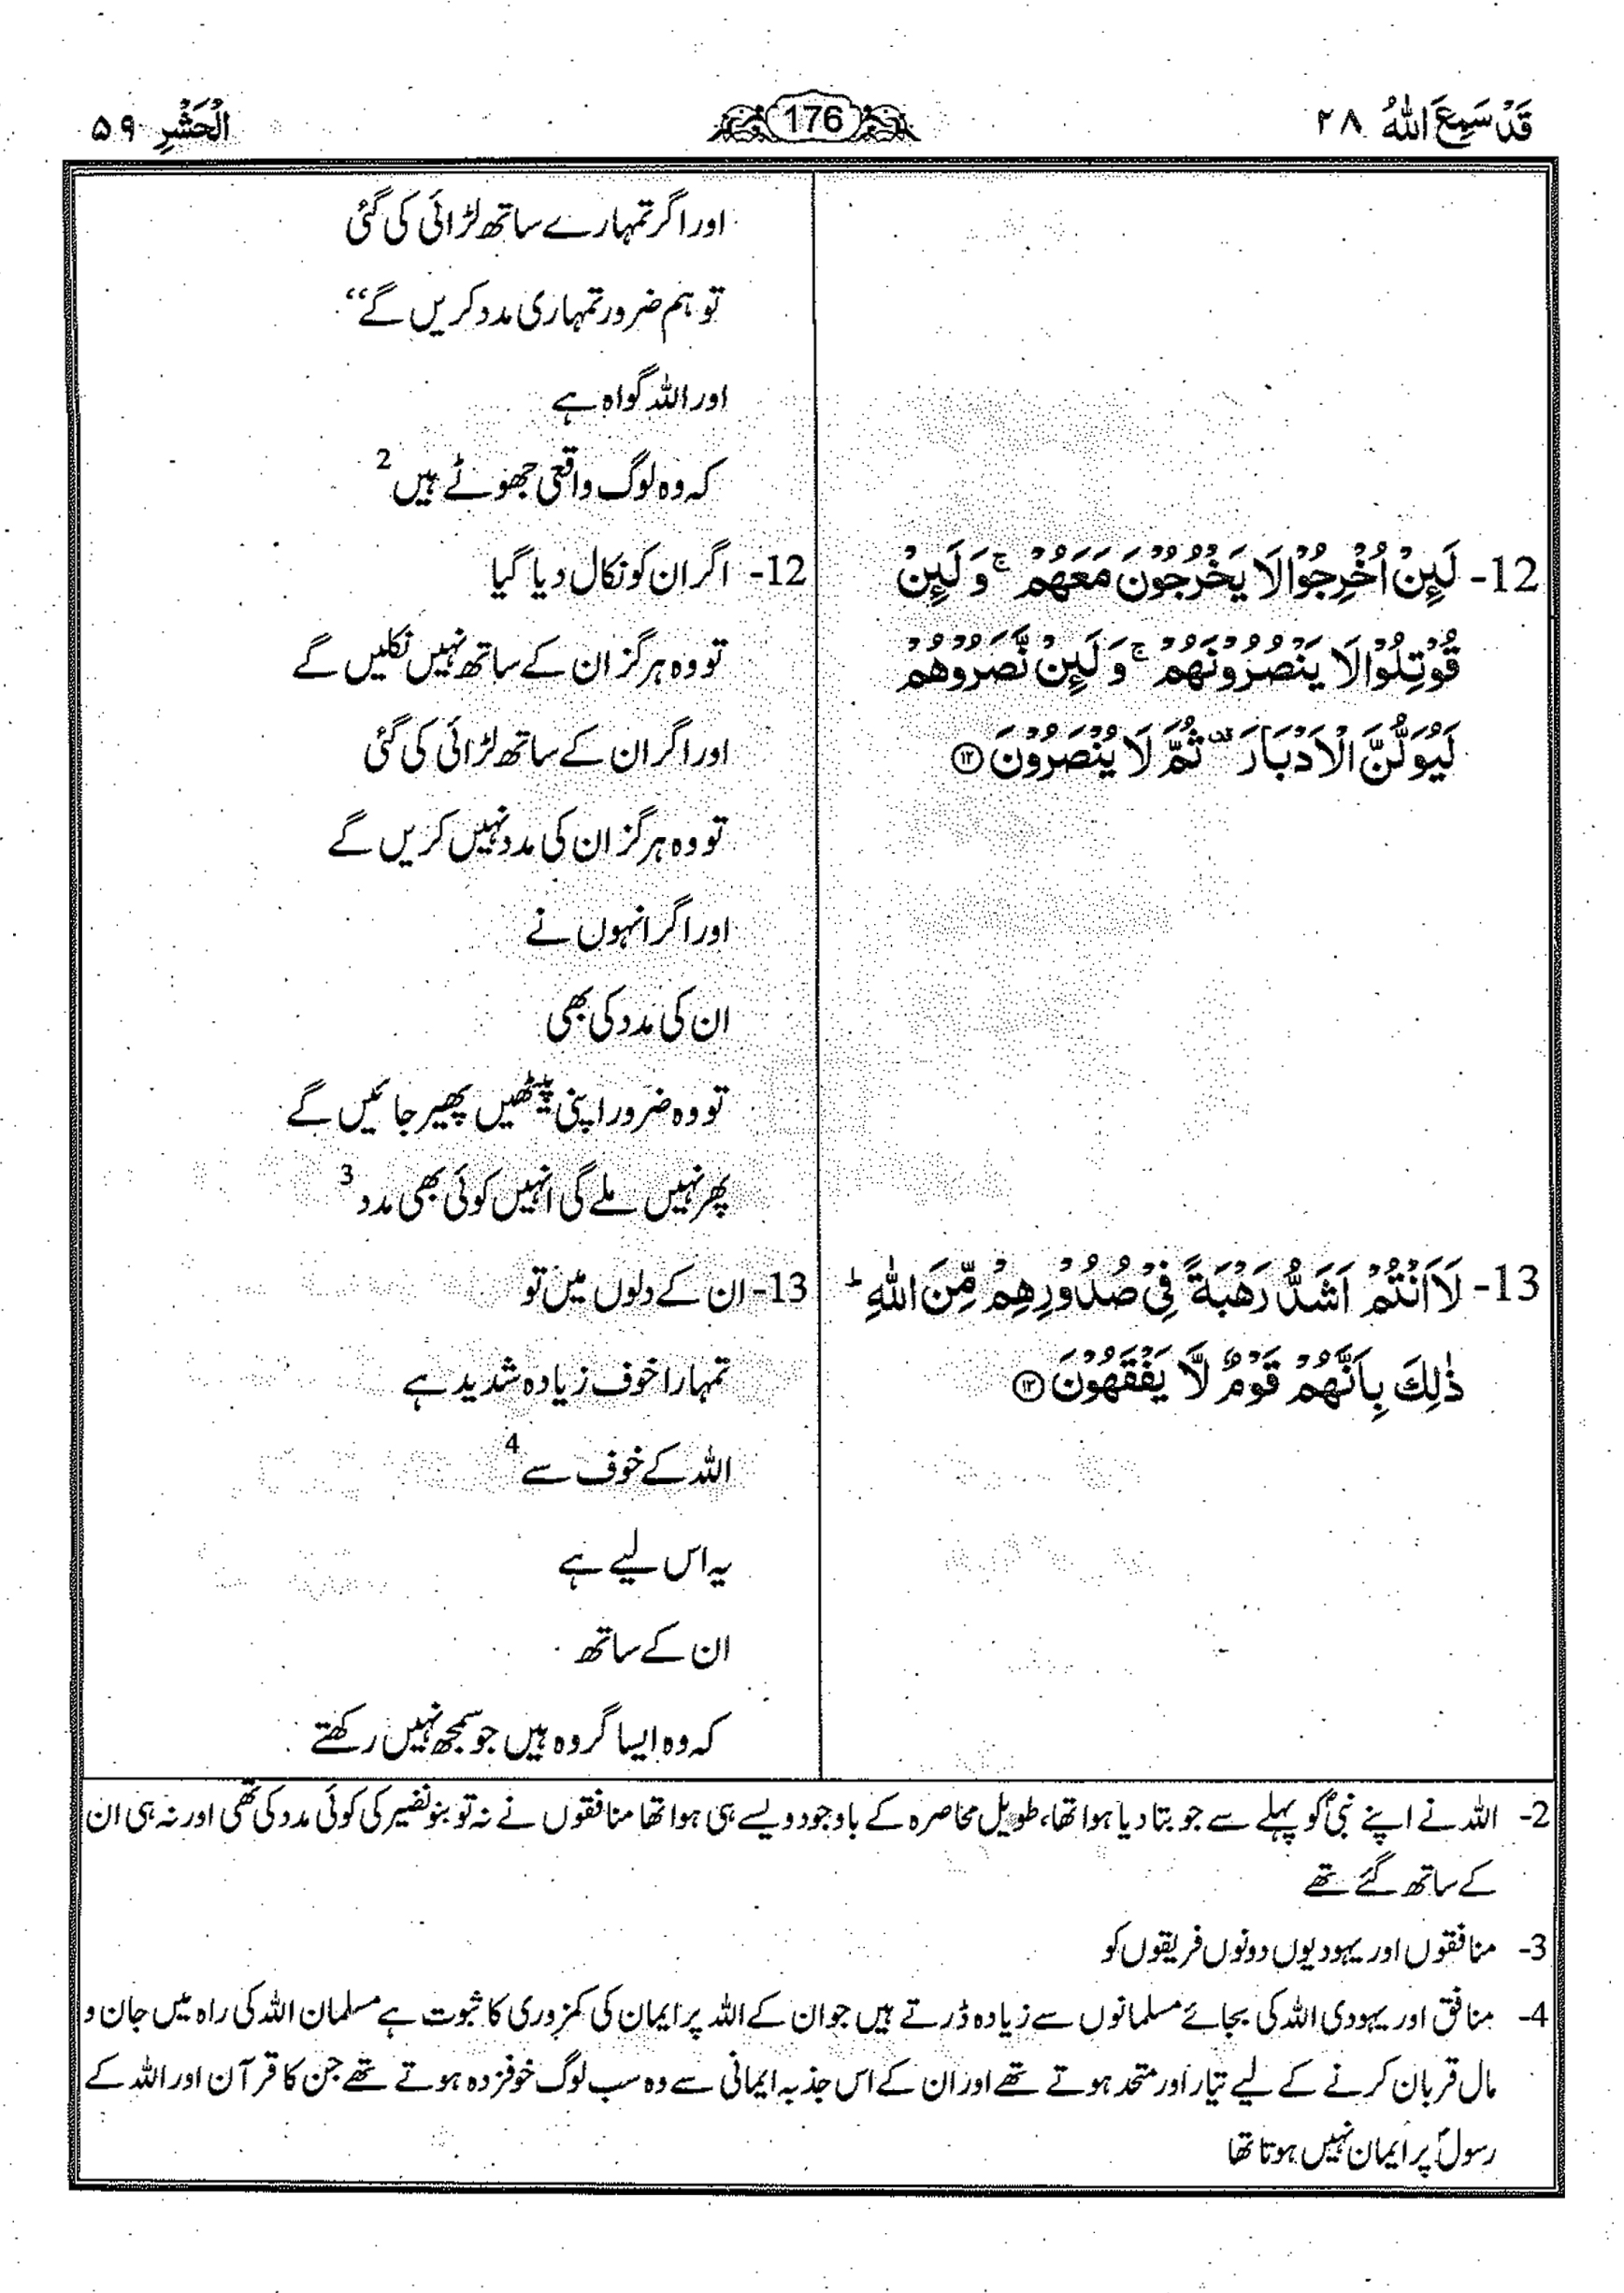 قَدْ سَمِعَ اللّٰهُ ۲۸
176
الْحَشْرِ ۵۹
اور اگر تمہارے ساتھ لڑائی کی گئی
تو ہم ضرور تمہاری مدد کریں گے‘‘
اور اللہ گواہ ہے
کہ وہ لوگ واقعی جھوٹے ہیں 2
12- لَىِٕنْ اُخْرِجُوْا لَا یَخْرُجُوْنَ مَعَهُمْ ۚ وَ لَىِٕنْ
قُوْتِلُوْا لَا یَنْصُرُوْنَهُمْ ۚ وَ لَىِٕنْ نَّصَرُوْهُمْ
لَیُوَلُّنَّ الْاَدْبَارَ ۫ ثُمَّ لَا یُنْصَرُوْنَ ۝۱۲
12- اگر ان کو نکال دیا گیا
تو وہ ہرگز ان کے ساتھ نہیں نکلیں گے
اور اگر ان کے ساتھ لڑائی کی گئی
تو وہ ہرگز ان کی مدد نہیں کریں گے
اور اگر انہوں نے
ان کی مدد کی بھی
تو وہ ضرور اپنی پیٹھیں پھیر جائیں گے
پھر نہیں ملے گی انہیں کوئی بھی مدد 3
13- لَاَانْتُمْ اَشَدُّ رَهْبَةً فِیْ صُدُوْرِهِمْ مِّنَ اللّٰهِ ؕ
ذٰلِكَ بِاَنَّهُمْ قَوْمٌ لَّا یَفْقَهُوْنَ ۝۱۳
13- ان کے دلوں میں تو
تمہارا خوف زیادہ شدید ہے
اللہ کے خوف سے 4
یہ اس لیے ہے
ان کے ساتھ
کہ وہ ایسا گروہ ہیں جو سمجھ نہیں رکھتے
2- اللہ نے اپنے نبیؐ کو پہلے سے جو بتا دیا ہوا تھا، طویل محاصرہ کے باوجود ویسے ہی ہوا تھا منافقوں نے نہ تو بنو نضیر کی کوئی مدد کی تھی اور نہ ہی ان
کے ساتھ گئے تھے
3- منافقوں اور یہودیوں دونوں فریقوں کو
4- منافق اور یہودی اللہ کی بجائے مسلمانوں سے زیادہ ڈرتے ہیں جو ان کے اللہ پر ایمان کی کمزوری کا ثبوت ہے مسلمان اللہ کی راہ میں جان و
مال قربان کرنے کے لیے تیار اور متحد ہوتے تھے اور ان کے اس جذبہ ایمانی سے وہ سب لوگ خوفزدہ ہوتے تھے جن کا قرآن اور اللہ کے
رسولؐ پر ایمان نہیں ہوتا تھا